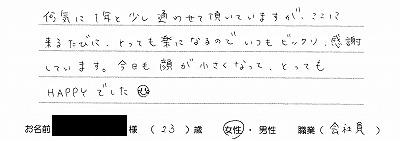 何気に1年と少し通わせて頂いていますが、ここに
来るたびに、とっても楽になるのでいつもビックリ、感謝
しています。今日も顔が小さくなって、とっても
HAPPYでした
お名前 様 (23)歳 女性・男性 職業(会社員)